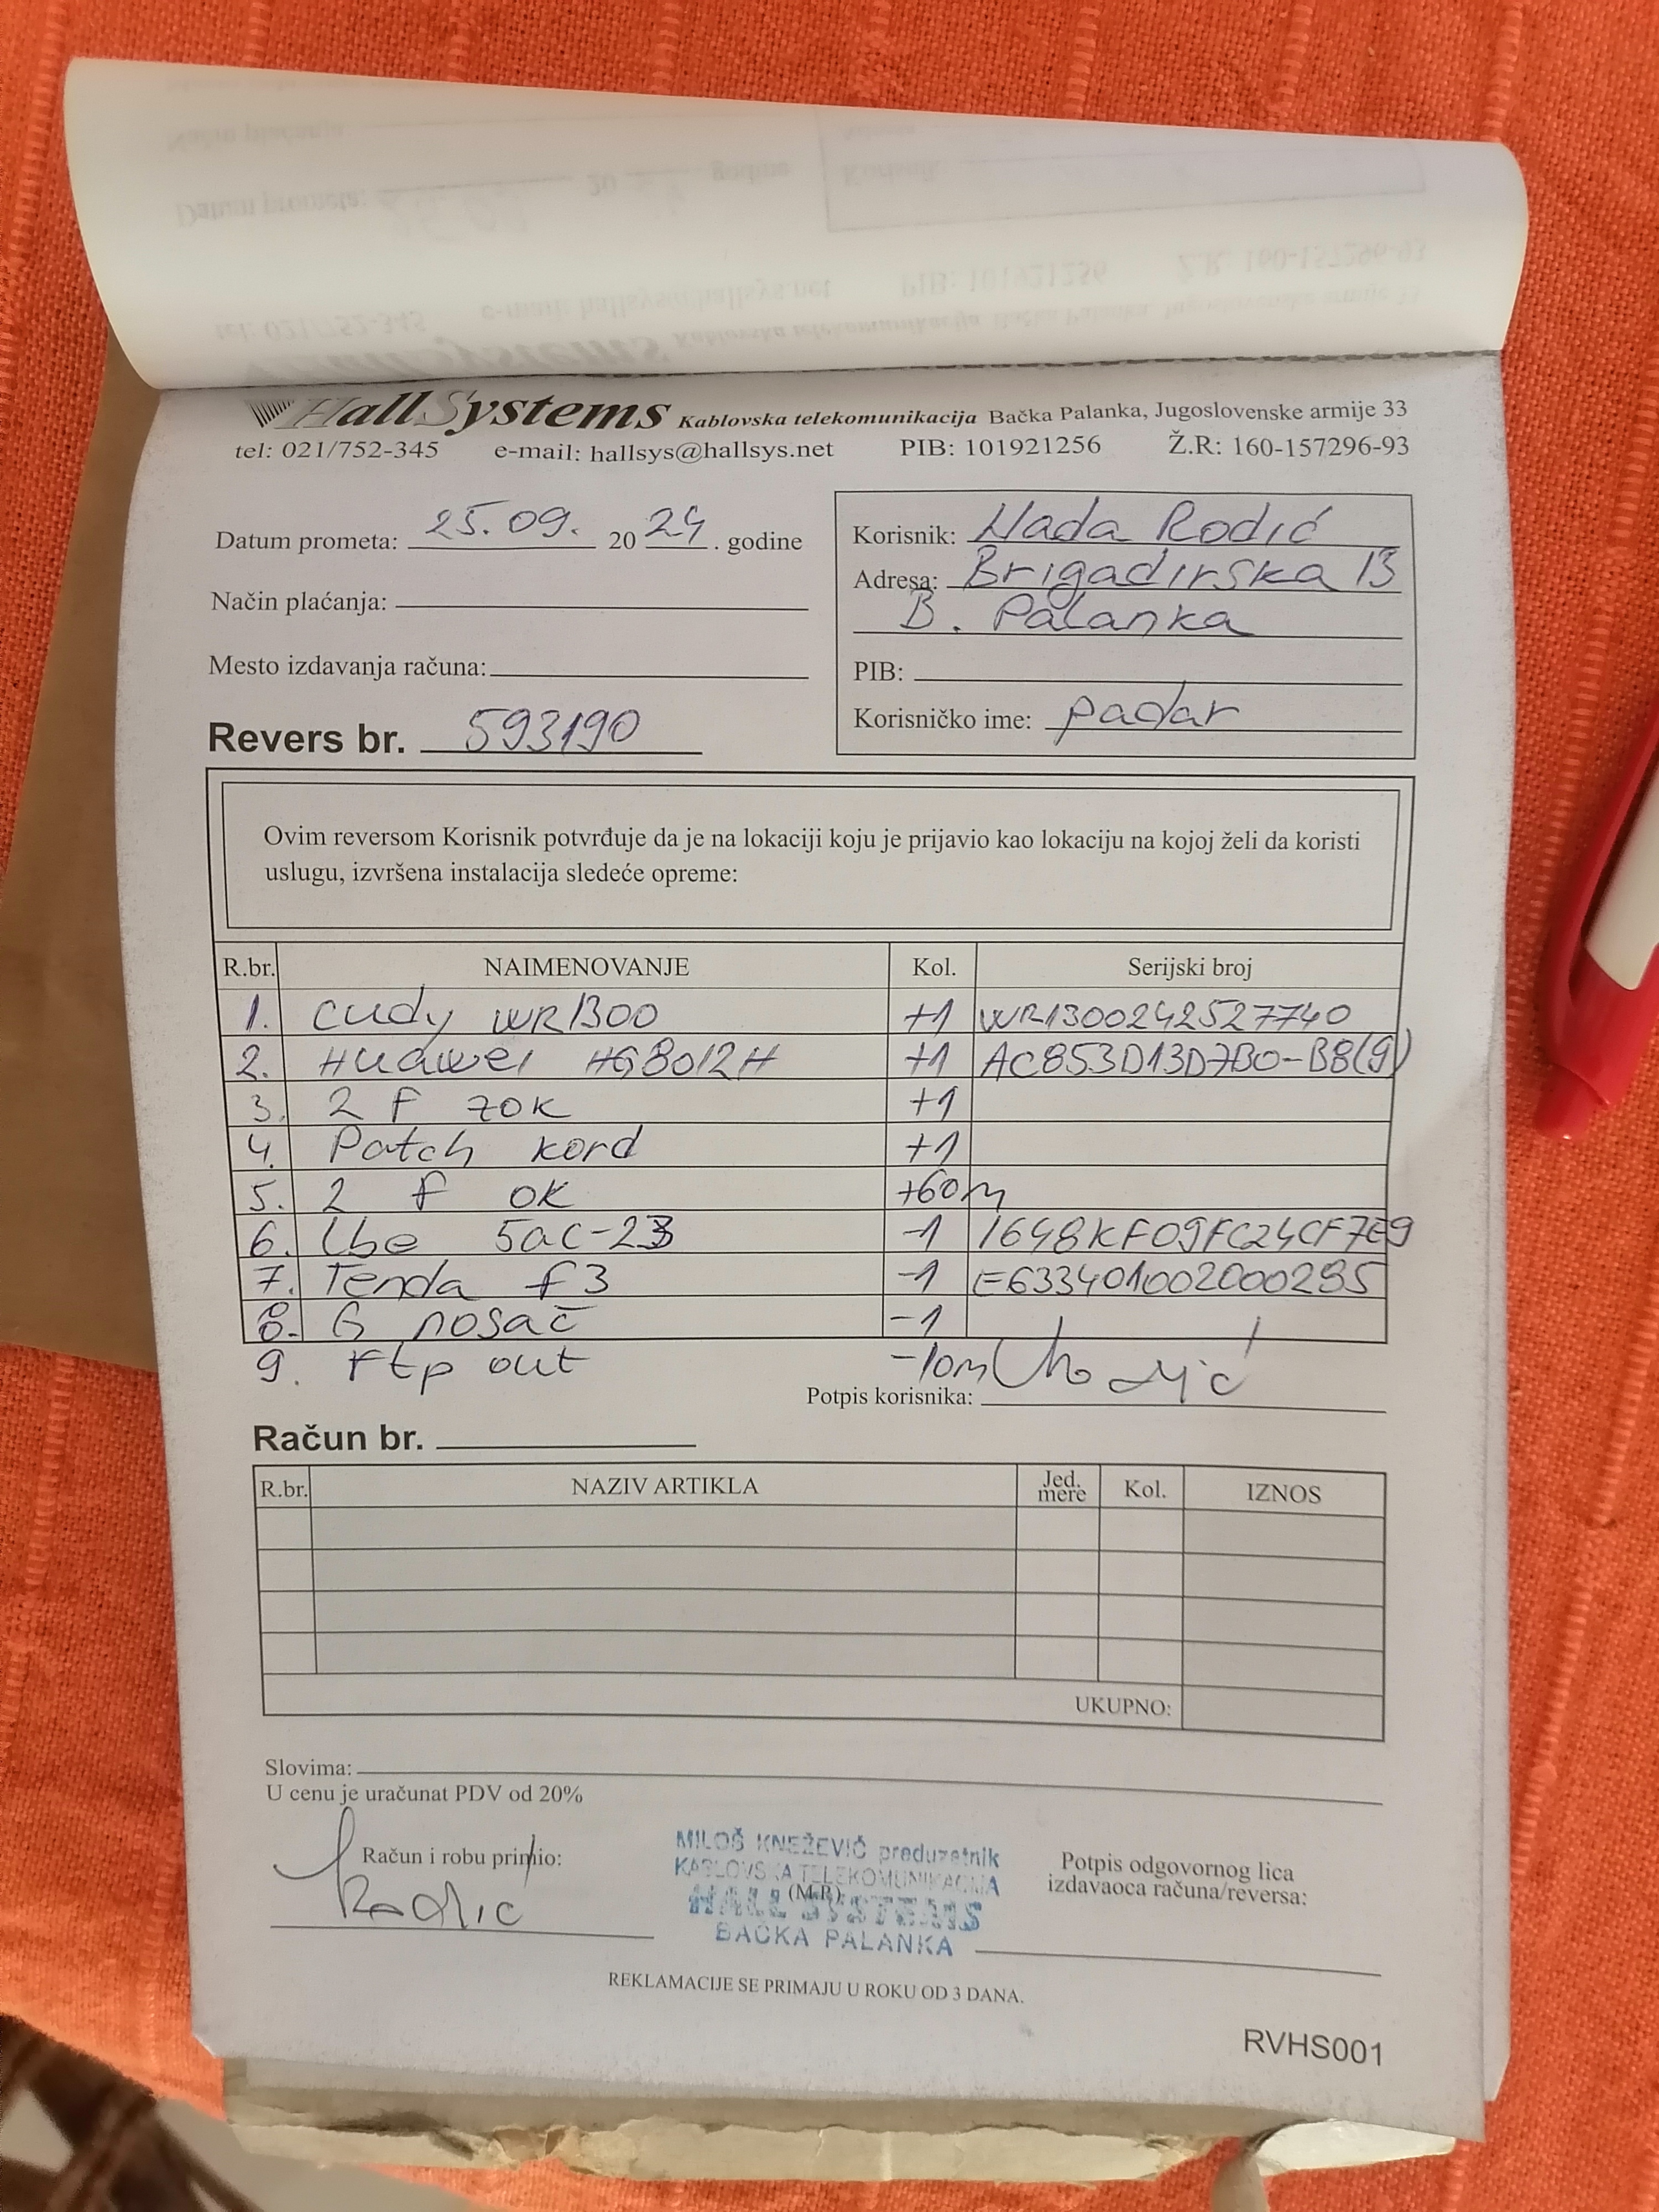 HallSystems Kablovska telekomunikacija Bačka Palanka, Jugoslovenske armije 33
tel: 021/752-345 e-mail: hallsys@hallsys.net PIB: 101921256 Ž.R: 160-157296-93
Datum prometa: 25.09. 2024. godine
Način plaćanja:
Mesto izdavanja računa:
Revers br. 593190
Korisnik: Nada Rodić
Adresa: Brigadirska 13
B. Palanka
PIB:
Korisničko ime: padar
Ovim reversom Korisnik potvrđuje da je na lokaciji koju je prijavio kao lokaciju na kojoj želi da koristi
uslugu, izvršena instalacija sledeće opreme:
R.br. NAIMENOVANJE Kol. Serijski broj
1. cudy WR1300 +1 WR1300242527740
2. Huawei HG8012H +1 AC853D13D7B0-B8(9)
3. 2 F ZOK +1
4. Patch kord +1
5. 2 f OK +60m
6. lbe 5ac-23 -1 1648KF09FC24CF7E9
7. Tenda f3 -1 E633401002000295
8. G nosač -1
9. ftp out -10m
Potpis korisnika:
Račun br.
R.br. NAZIV ARTIKLA Jed. mere Kol. IZNOS
UKUPNO:
Slovima:
U cenu je uračunat PDV od 20%
Računi i robu primio:
Rodić
MILOŠ KNEŽEVIĆ preduzetnik
KABLOVSKA TELEKOMUNIKACIJA
(M.P.)
HALL SYSTEMS
BAČKA PALANKA
Potpis odgovornog lica
izdavaoca računa/reversa:
REKLAMACIJE SE PRIMAJU U ROKU OD 3 DANA.
RVHS001